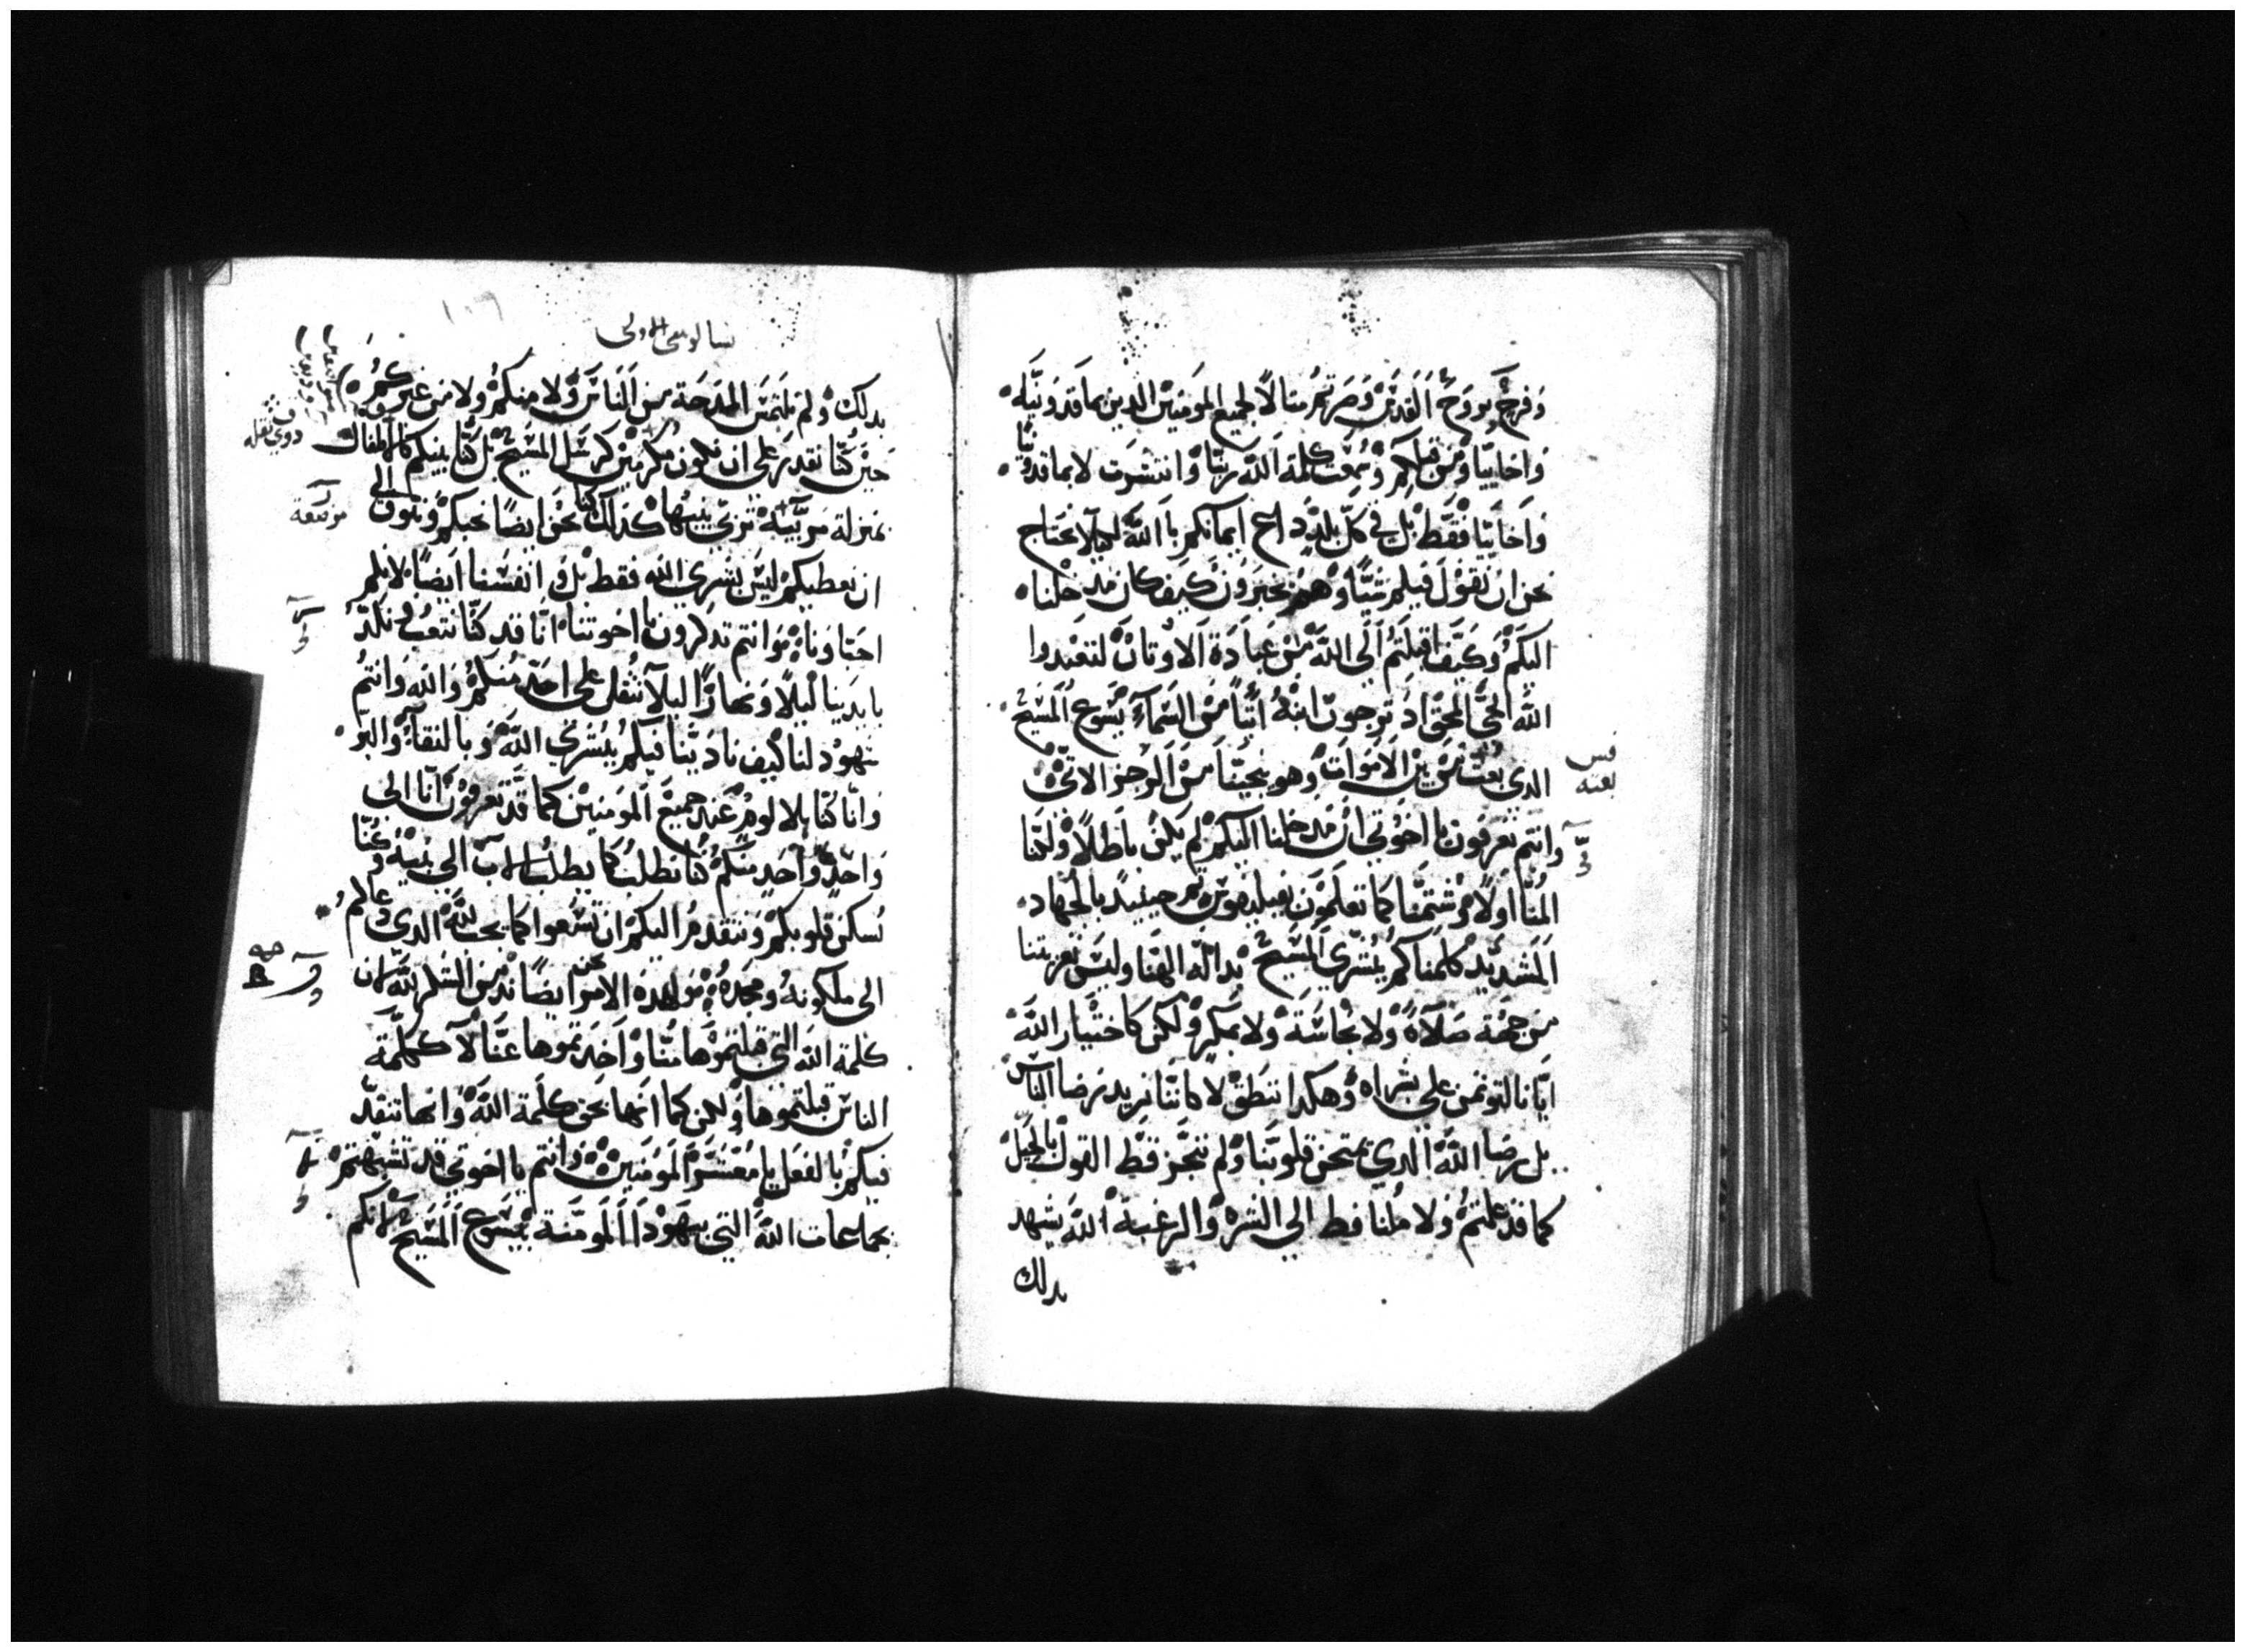 وفرح بروح القدس وصرتم مثالا لجميع المومنين الدين بماقدونيه
واخاييا ومن قبلكم سمعت كلمة الله ربنا وانتشرت لا بماقدونيا
واخاييا فقط بل في كل بلد داع ايمانكم بالله ليلا نحتاج
نحن ان نقول فيكم شيا وهم يخبرون كيف كان مدخلنا
اليكم وكيف اقبلتم الى الله من عبادة الاوتان لتعبدوا
الله الحي المحق اد ترجون ابنه اتيا من السماء يسوع المسيح
الدي بعث من بين الاموات وهو ينجينا من الرجز الاتي
وانتم تعرفون يا اخوتي ان مدخلنا اليكم لم يكن باطلا ولكنا
المنا اولا وشتمنا كما تعلمون بفيليفوس تم حينيد بالجهاد
الشديد كلمناكم بشري المسيح بدالة الهنا وليس تعزيتنا
من جهة ضلالة ولا نجاسة ولا بمكر ولكن كاختيار الله
ايانا لنوتمن على بشراه وهكدا ننطق لا كاننا نريد رضا الناس
بل رضا الله الدي يمتحن قلوبنا ولم نتجز قط القول بالحيل
كما قد علمتم ولا ملنا قط الي الشره والرغبة الله يشهد
بدلك
قس
بعثه
تسالونيقي الاولى
١٠٦
بدلك ولم نلتمس المدحة من الناس ولا منكم ولا من غيركم
حين كنا نقدر على ان نكون مكرمين كرسل المسيح بل كنا بينكم كالاطفال
بمنزلة مربية تربي بنيها كدلك كنا نحن ايضا نحبكم ونتوق الى
ان نعطيكم ليس بشري الله فقط بل و انفسنا ايضا لانكم
احباونا وانتم تدكرون يا اخوتنا انا قد كنا نتعب ونكد
بايدينا ليلا ونهارا ليلا نتقل على احد منكم والله وانتم
شهود لنا كيف نادينا فيكم ببشري الله وبالنقاء والبر
وانا كنا بلا لوم عند جميع المومنين كما قد تعرفون انا الى
واحد واحد منكم كنا نطلب كما يطلب الاب الي بنيه وكنا
نسكن قلوبكم ونتقدم اليكم ان تسعوا كما يحب لله الدي دعاكم
الى ملكوته ومجده من اهدة الامر نحن ايضا ندمن الشكر لله ان
كلمة الله التي قبلتموها منا واخدتموها عنا لا ككلمة
الناس قبلتموها ولكن كما انها بحق كلمة الله وانها تنفد
فيكم بالفعل يا معشر المومنين وانتم يا اخوتي قد تشبهتم
بجماعات الله التي بيهودا المومنة بيسوع المسيح لانكم
مرضعة